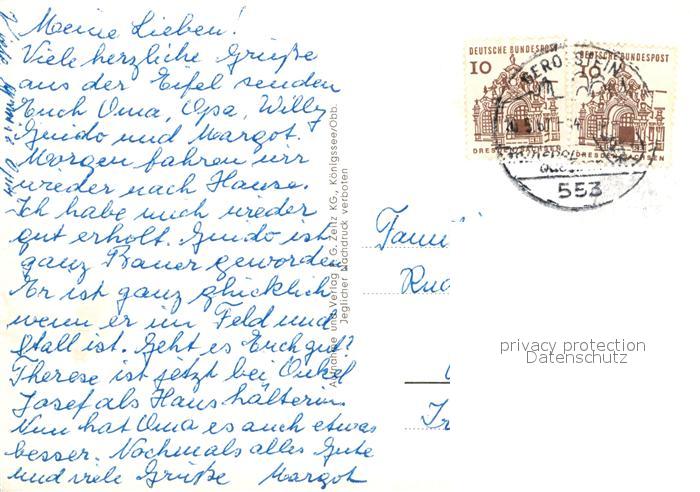 Meine Lieben!
Viele herzliche Grüße
aus der Eifel senden
Euch Oma, Opa, Willy
Guido und Margot.
Morgen fahren wir
wieder nach Hause.
Ich habe mich wieder
gut erholt. Guido ist
ganz Bauer geworden
Er ist ganz glücklich
wenn er im Feld und
Stall ist. Geht es Euch gut?
Therese ist jetzt bei Onkel
Josef als Haushälterin.
Nun hat Oma es auch etwas
besser. Nochmals alles Gute
und viele Grüße Margot
Aufnahme und Verlag G. Zeitz KG., Königssee/Obb.
Jeglicher Nachdruck verboten
DEUTSCHE BUNDESPOST
10
DRESDEN
DEUTSCHE BUNDESPOST
10
DRESDEN SACHSEN
GEROLSTEIN
553
Famil
Rud
privacy protection
Datenschutz